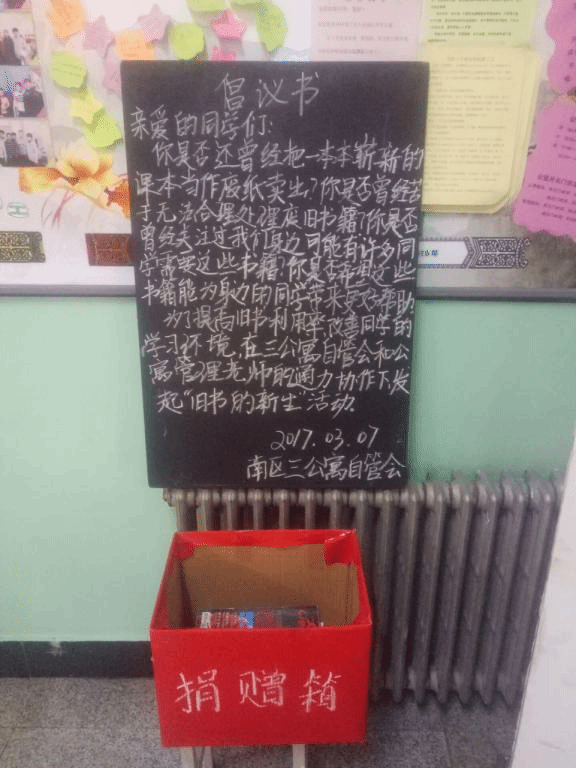 倡议书
亲爱的同学们:
你是否还曾经把一本本崭新的
课本当作废纸卖出?你是否曾经苦
于无法合理处理废旧书籍?你是否
曾经关注过我们身边可能有许多同
学需要这些书籍?你是否希望这些
书籍能为身边的同学带来更多帮助?
为了提高旧书利用率改善同学的
学习环境,在三公寓自管会和公
寓管理老师的通力协作下,发
起“旧书的新生”活动.
2017.03.07
南区三公寓自管会
捐赠箱